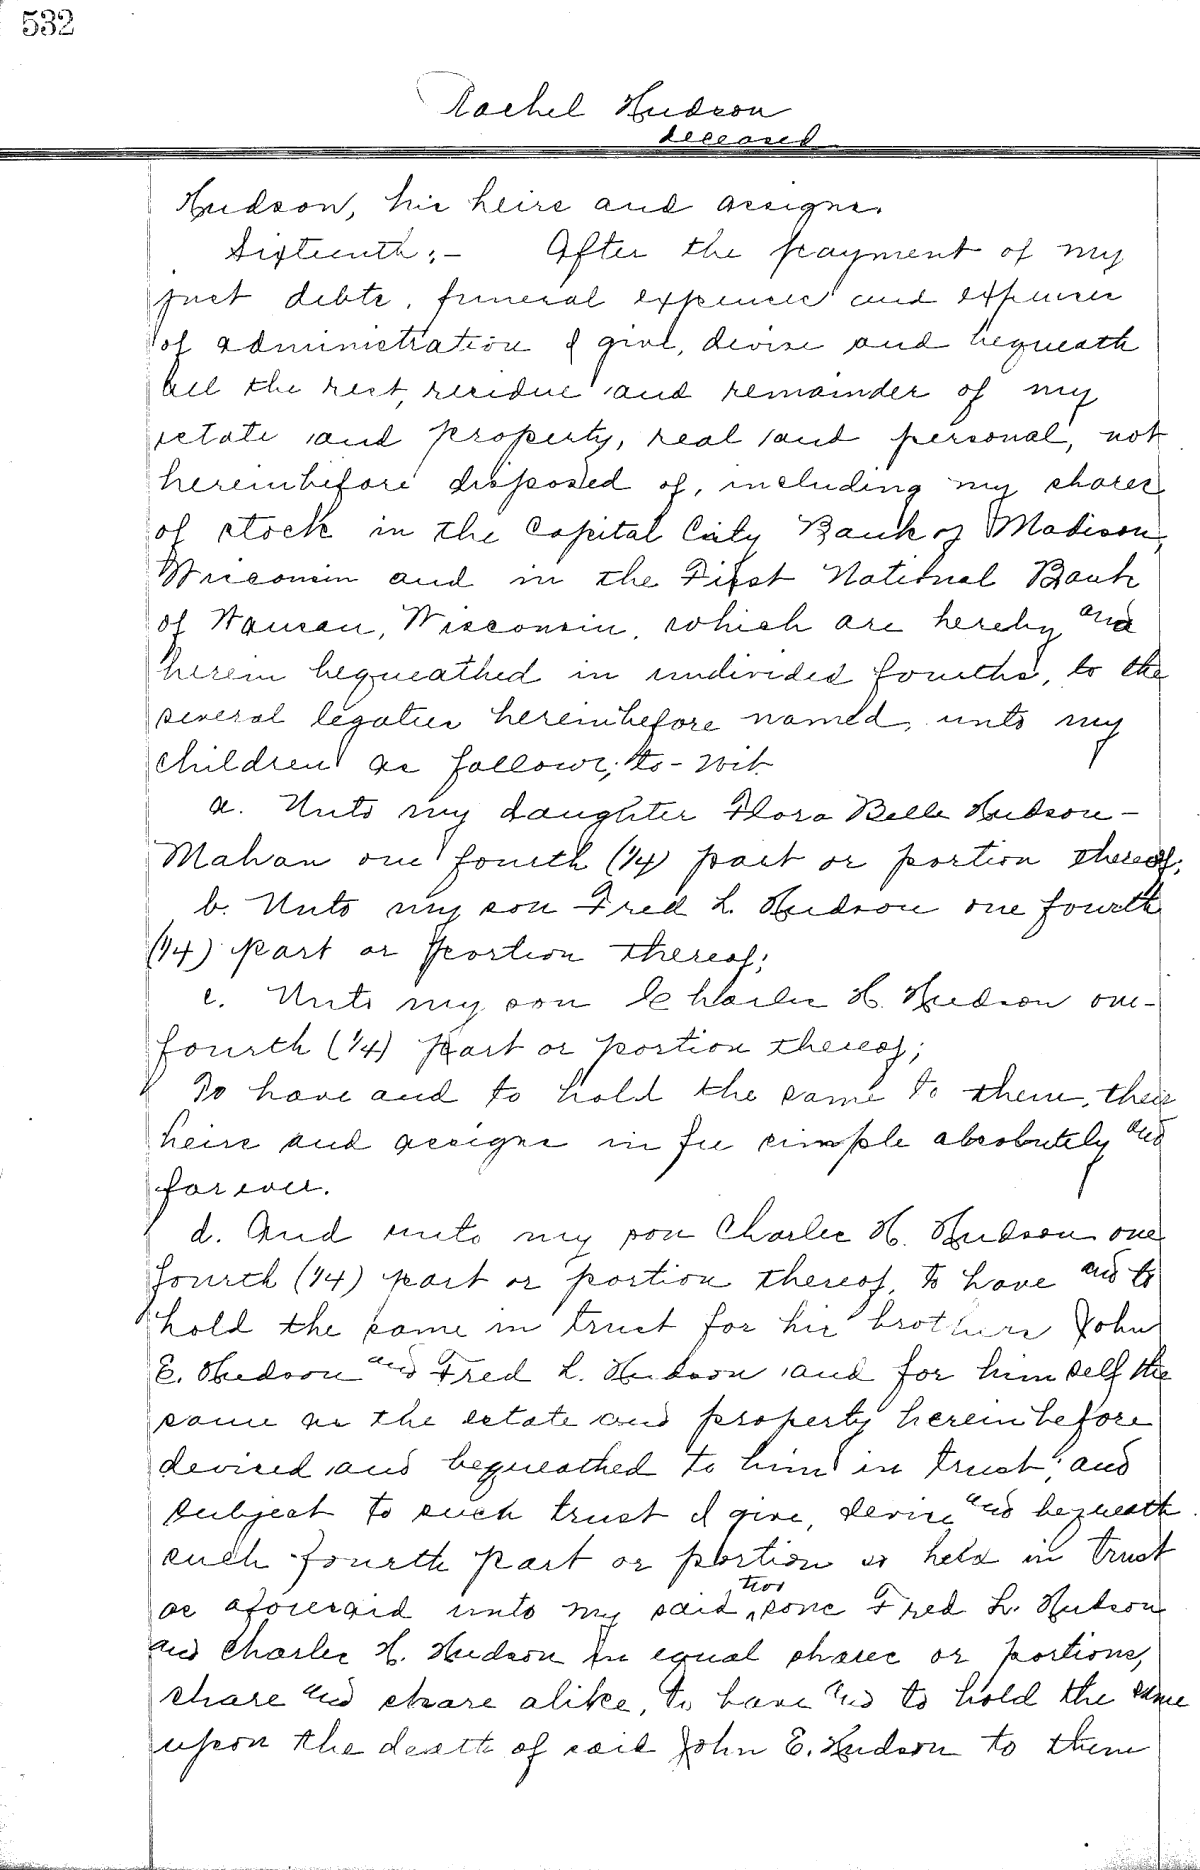 532
Rachel Hudson
deceased
Hudson, his heirs and assigns.
Sixteenth:- After the payment of my
just debts, funeral expenses and expenses
of administration I give, devise and bequeath
all the rest, residue and remainder of my
estate and property, real and personal, not
hereinbefore disposed of, including my shares
of stock in the Capital City Bank of Madison,
Wisconsin and in the First National Bank
of Wausau, Wisconsin, which are hereby and
herein bequeathed in undivided fourths, to the
several legatees hereinbefore named, unto my
children as follows; to-wit
a. Unto my daughter Flora Belle Hudson-
Mahan one fourth (1/4) part or portion thereof;
b. Unto my son Fred L. Hudson one fourth
(1/4) part or portion thereof;
c. Unto my son Charles H. Hudson one-
fourth (1/4) part or portion thereof;
To have and to hold the same to them, their
heirs and assigns in fee simple absolutely and
forever.
d. And unto my son Charles H. Hudson one
fourth (1/4) part or portion thereof, to have and to
hold the same in trust for his brothers John
E. Hudson and Fred L. Hudson and for himself the
same as the estate and property hereinbefore
devised and bequeathed to him in trust; and
subject to such trust I give, devise and bequeath
such fourth part or portion so held in trust
as aforesaid unto my said two sons Fred L. Hudson
and Charles H. Hudson in equal shares or portions,
share and share alike, to have and to hold the same
upon the death of said John E. Hudson to them